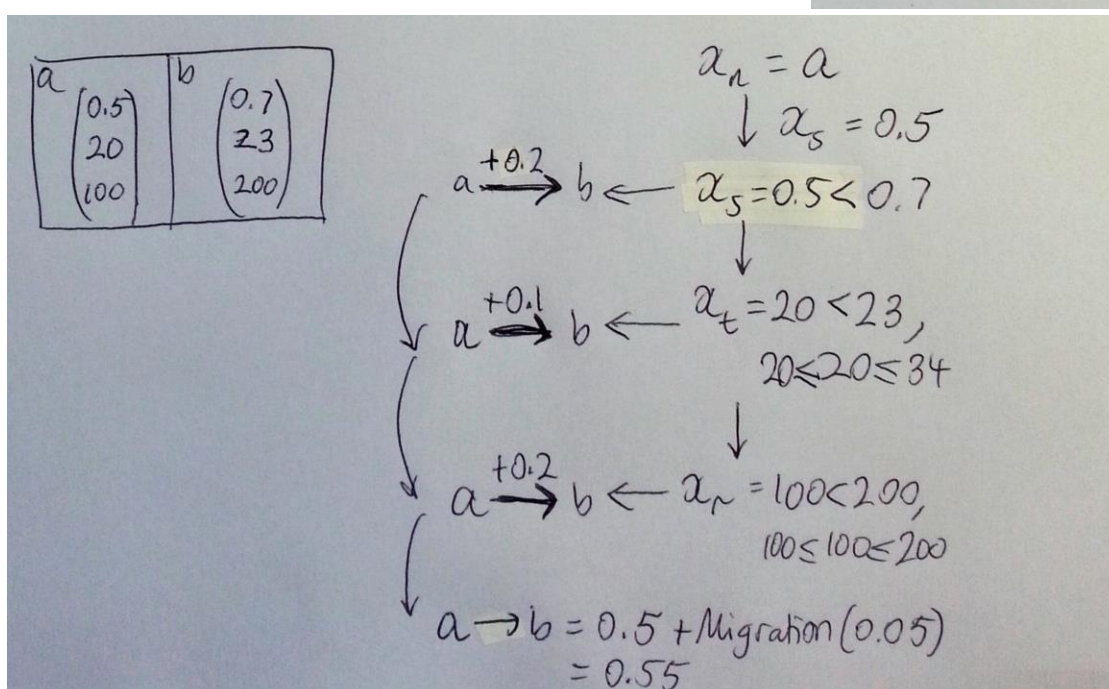 a
(0.5
20
100)
b
(0.7
23
200)
x_n = a
↓ x_s = 0.5
a +0.2→ b ← x_s = 0.5 < 0.7
↓
a +0.1→ b ← x_t = 20 < 23,
20 ≤ 20 ≤ 34
↓
a +0.2→ b ← x_r = 100 < 200,
100 ≤ 100 ≤ 200
a → b = 0.5 + Migration (0.05)
= 0.55